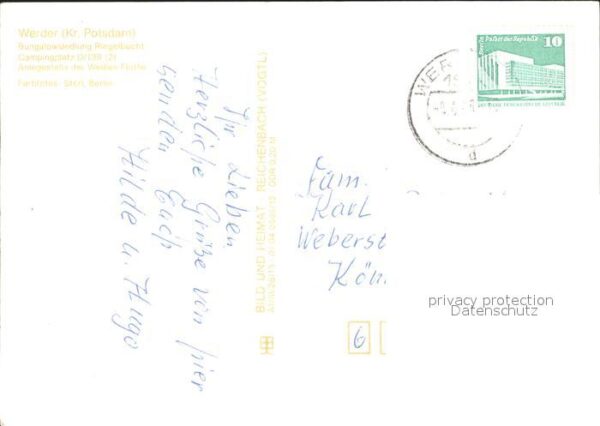 Werder (Kr. Potsdam)
Bungalowsiedlung Riegelbucht
Campingplatz D/139 (2)
Anlegestelle der Weißen Flotte
Farbfotos: Berlin
Ihr Lieben
Herzliche Grüße von hier
senden Euch
Hilde u. Hugo
BILD UND HEIMAT REICHENBACH (VOGTL)
Palast der Republik
10
WER
d
Fam.
Karl
Weberst
Kön
6
privacy protection
Datenschutz